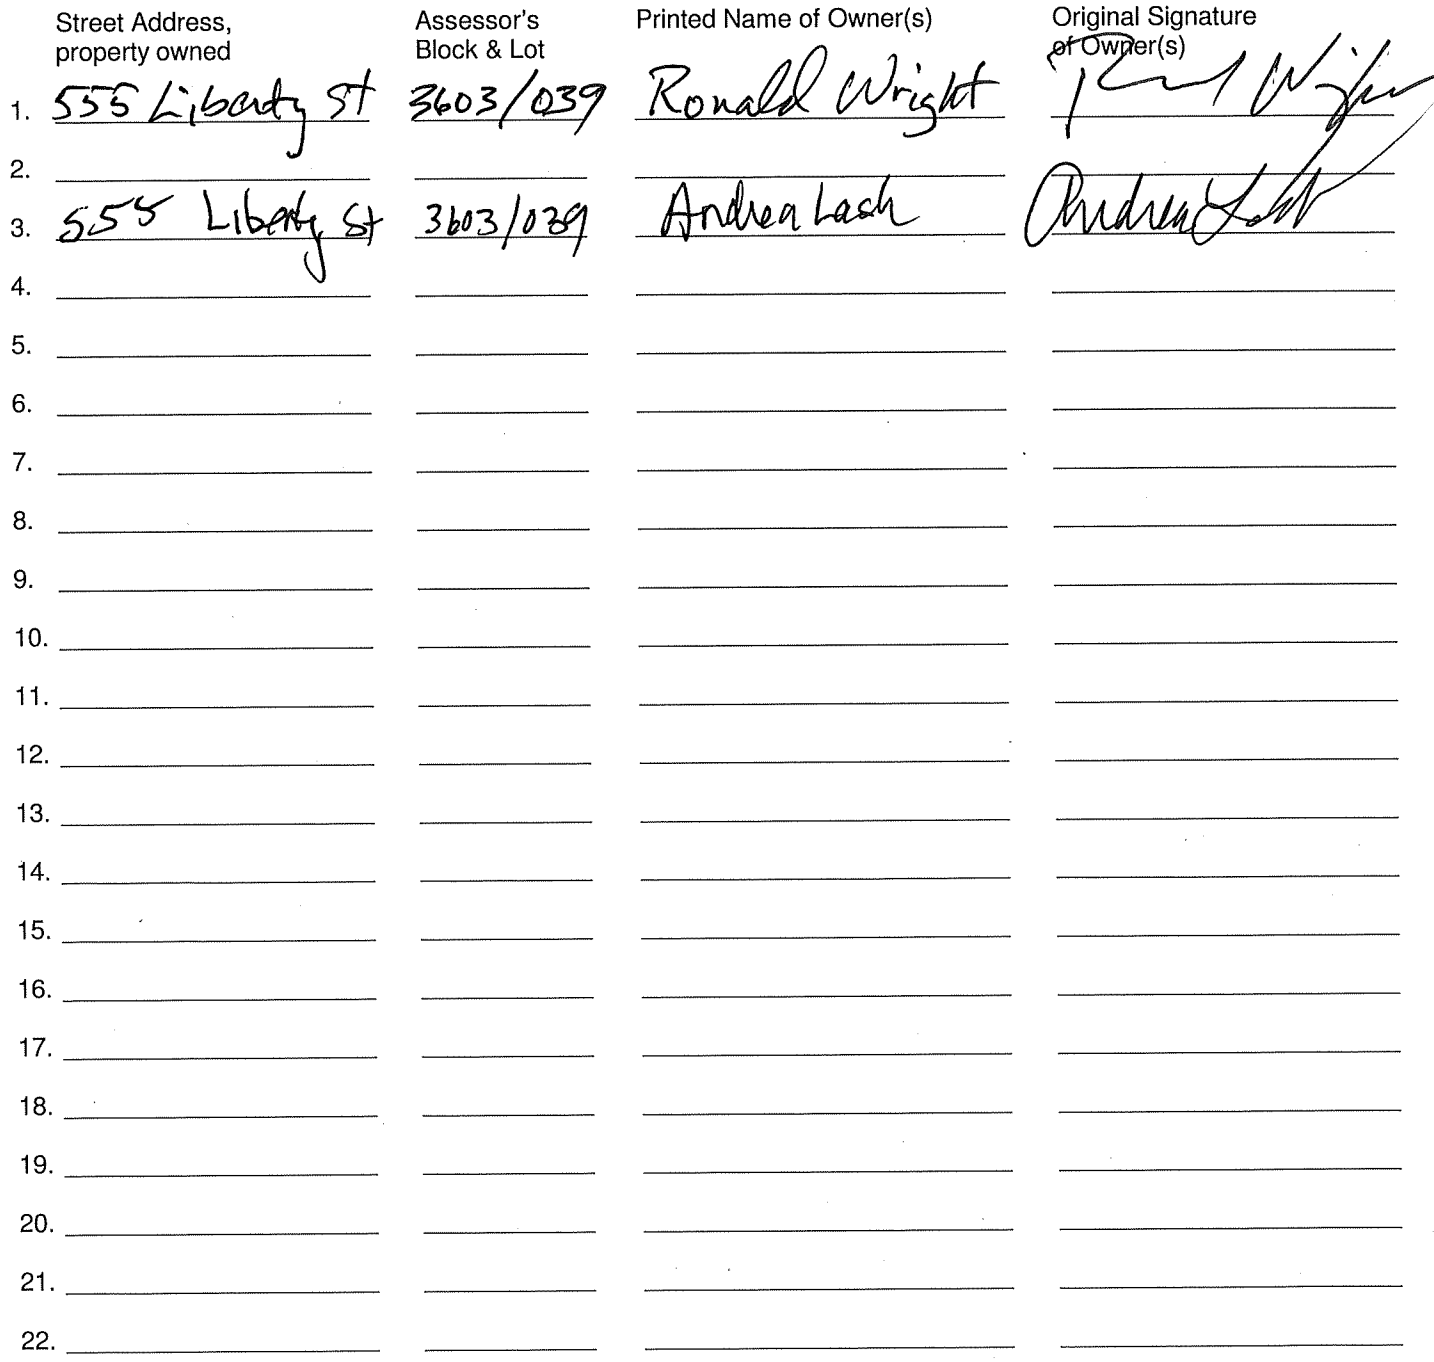 Street Address, property owned Assessor's Block & Lot Printed Name of Owner(s) Original Signature of Owner(s)
1. 555 Liberty St 3603/039 Ronald Wright
2.
3. 555 Liberty St 3603/039 Andrea Lash Andrea
4.
5.
6.
7.
8.
9.
10.
11.
12.
13.
14.
15.
16.
17.
18.
19.
20.
21.
22.